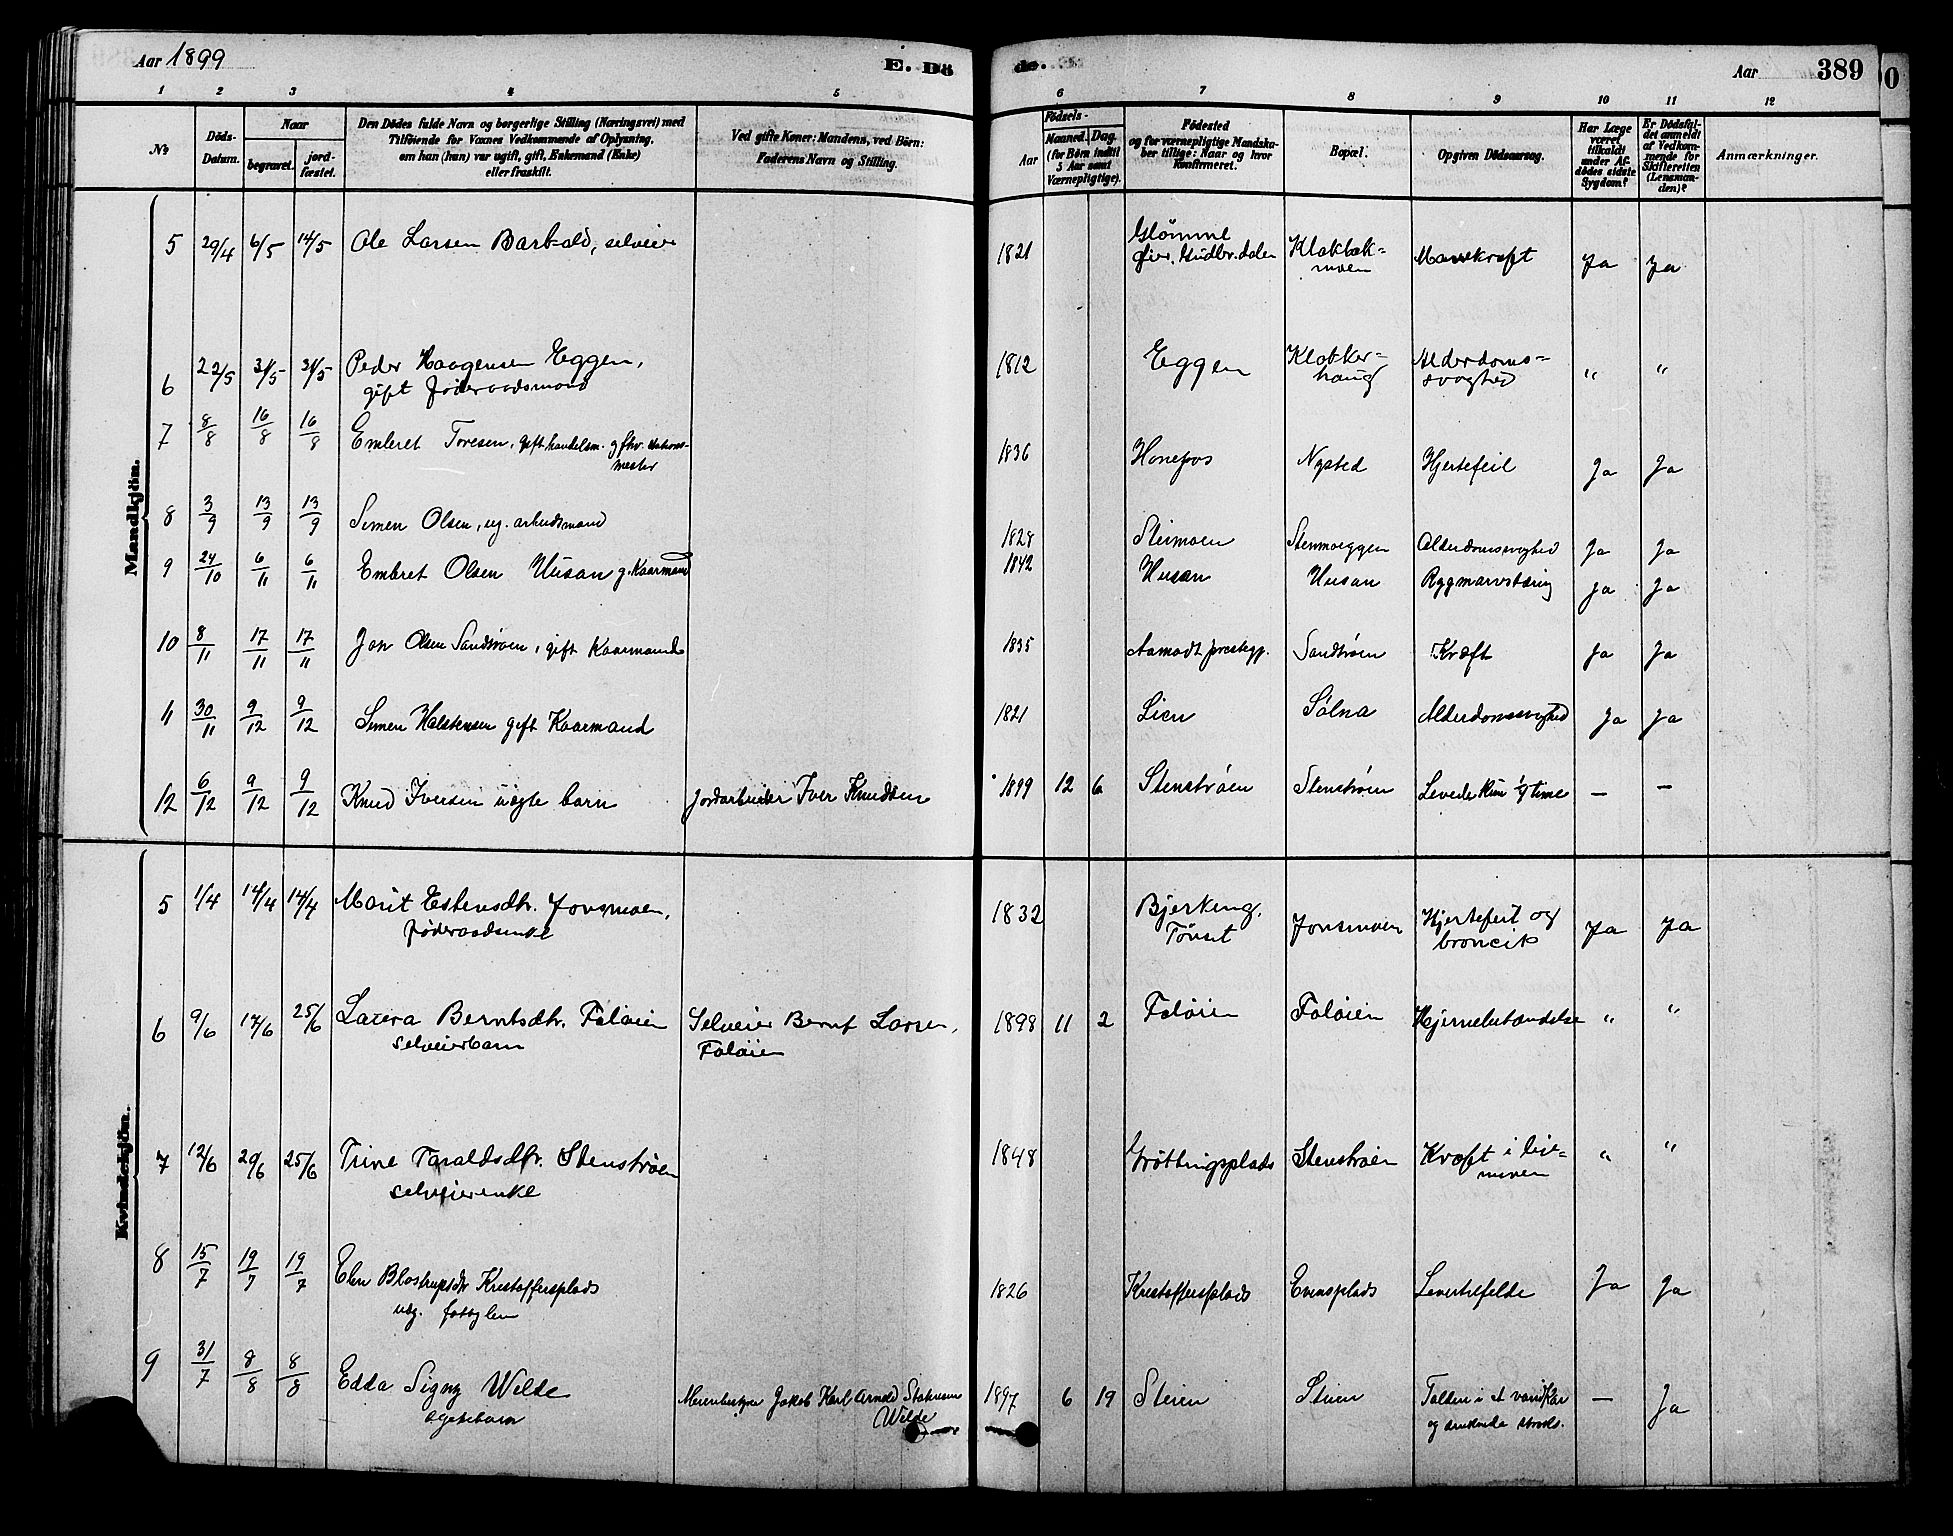 Aar 1899
E. Dö
de.
Aar
389
1 2 3 4 5 6 7 8 9 10 11 12
No
Döds-Datum.
Naar
begravet.
jord-fæstet.
Den Dödes fulde Navn og borgerlige Stilling (Næringsvei) med
Tilföiende for Voxnes Vedkommende af Oplysning,
om han (hun) var ugift, gift, Enkemand (Enke)
eller fraskilt.
Ved gifte Koner: Mandens, ved Börn:
Faderens Navn og Stilling.
Födsels-
Aar
Maaned.
Dag.
(for Börn indtil
5 Aar samt
Værnepligtige).
Födested
og for værnepligtige Mandska-
ber tillige: Naar og hvor
Konfirmeret.
Bopæl.
Opgiven Dödsaarsag.
Har Læge
været
tilkaldt
under Af-
dödes sidste
Sygdom?
Er Dödsfal-
det anmeldt
af Vedkom-
mende for
Skifteretten
(Lensman-
den)?
Anmærkninger.
Mandkjön.
5 29/4 6/5 14/5 Ole Larsen Barkald, selveier 1821 Glömmel
Gudbr.dalen Klokbak-
moen Mavekræft Ja Ja
6 22/5 31/5 31/5 Peder Haagensen Eggen,
gift föderaadsmand 1812 Eggen Klokker-
haug Alderdoms-
svaghed " "
7 8/8 16/8 16/8 Embret Toresen, gift handelsm. og fhv. stations-
mester 1836 Honepos Nysted Hjertefeil Ja Ja
8 3/9 13/9 13/9 Simen Olsen, ug. arbeidsmand 1828 Steimoen Stenmoeggen Alderdomssvaghed Ja Ja
9 24/10 6/11 6/11 Embret Olsen Husan g. Kaarmand 1842 Husan Husan Rygmarvstæring Ja Ja
10 8/11 17/11 17/11 Jon Olsen Sandtröen, gift Kaarmand 1835 Aamodt prestegj. Sandtröen Kræft Ja Ja
11 30/11 9/12 9/12 Simen Halstensen gift Kaarmand 1821 Lien Sölna Alderdomssvaghed Ja Ja
12 6/12 9/12 9/12 Knud Iversen uægte barn Jordarbeider Iver Knudsen 1899 12 6 Stenströen Stenströen Levede kun 1/4 time — —
Kvindekjön.
5 1/4 14/4 14/4 Marit Estensdtr. Jonsmoen,
föderaadsenke 1832 Bjerkeng,
Tönset Jonsmoen Hjertefeil og
broncit Ja Ja
6 9/6 17/6 25/6 Laura Berntsdtr. Folöien
selveierbarn Selveier Bernt Larsen,
Folöien 1898 11 2 Folöien Folöien Hjernebetændelse " "
7 12/6 20/6 25/6 Trine Taraldsdtr. Stenströen
selveierenke 1848 Gröttingsplads Stenströen Kræft i liv-
moren " "
8 15/7 19/7 19/7 Elen Blostrupsdtr Kristoffersplads
ug. fattiglem 1826 Kristoffersplads Evensplads Levertilfelde Ja Ja
9 31/7 8/8 8/8 Edda Signy Welde
ægtebarn Meieribestyrer Jakob Karl Arnold
Welde 1897 6 19 Steien Steien Falden i et vandkar
og druknede strax. — Ja